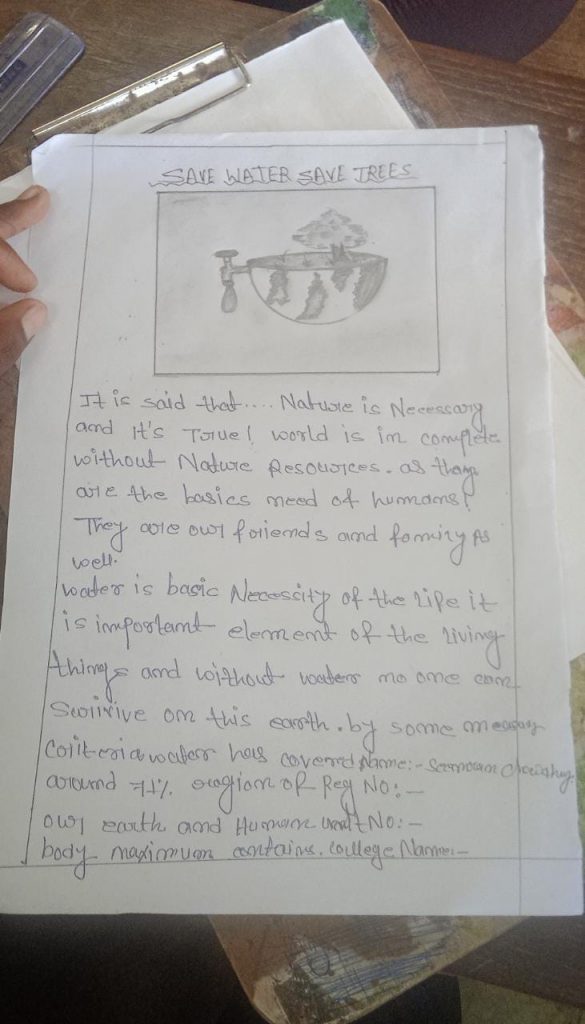 SAVE WATER SAVE TREES
It is said that.... Nature is Necessary
and It's True! world is in complete
without Nature Resources. as they
are the basics need of humans!
They are our friends and family As
well.
water is basic Necessity of the life it
is important element of the living
things and without waters no one can
Survive on this earth. by some
Criteria water has covered Name:-
around 71% region of Reg No:-
our earth and Human unit No:-
body maximum contains. College Name:-